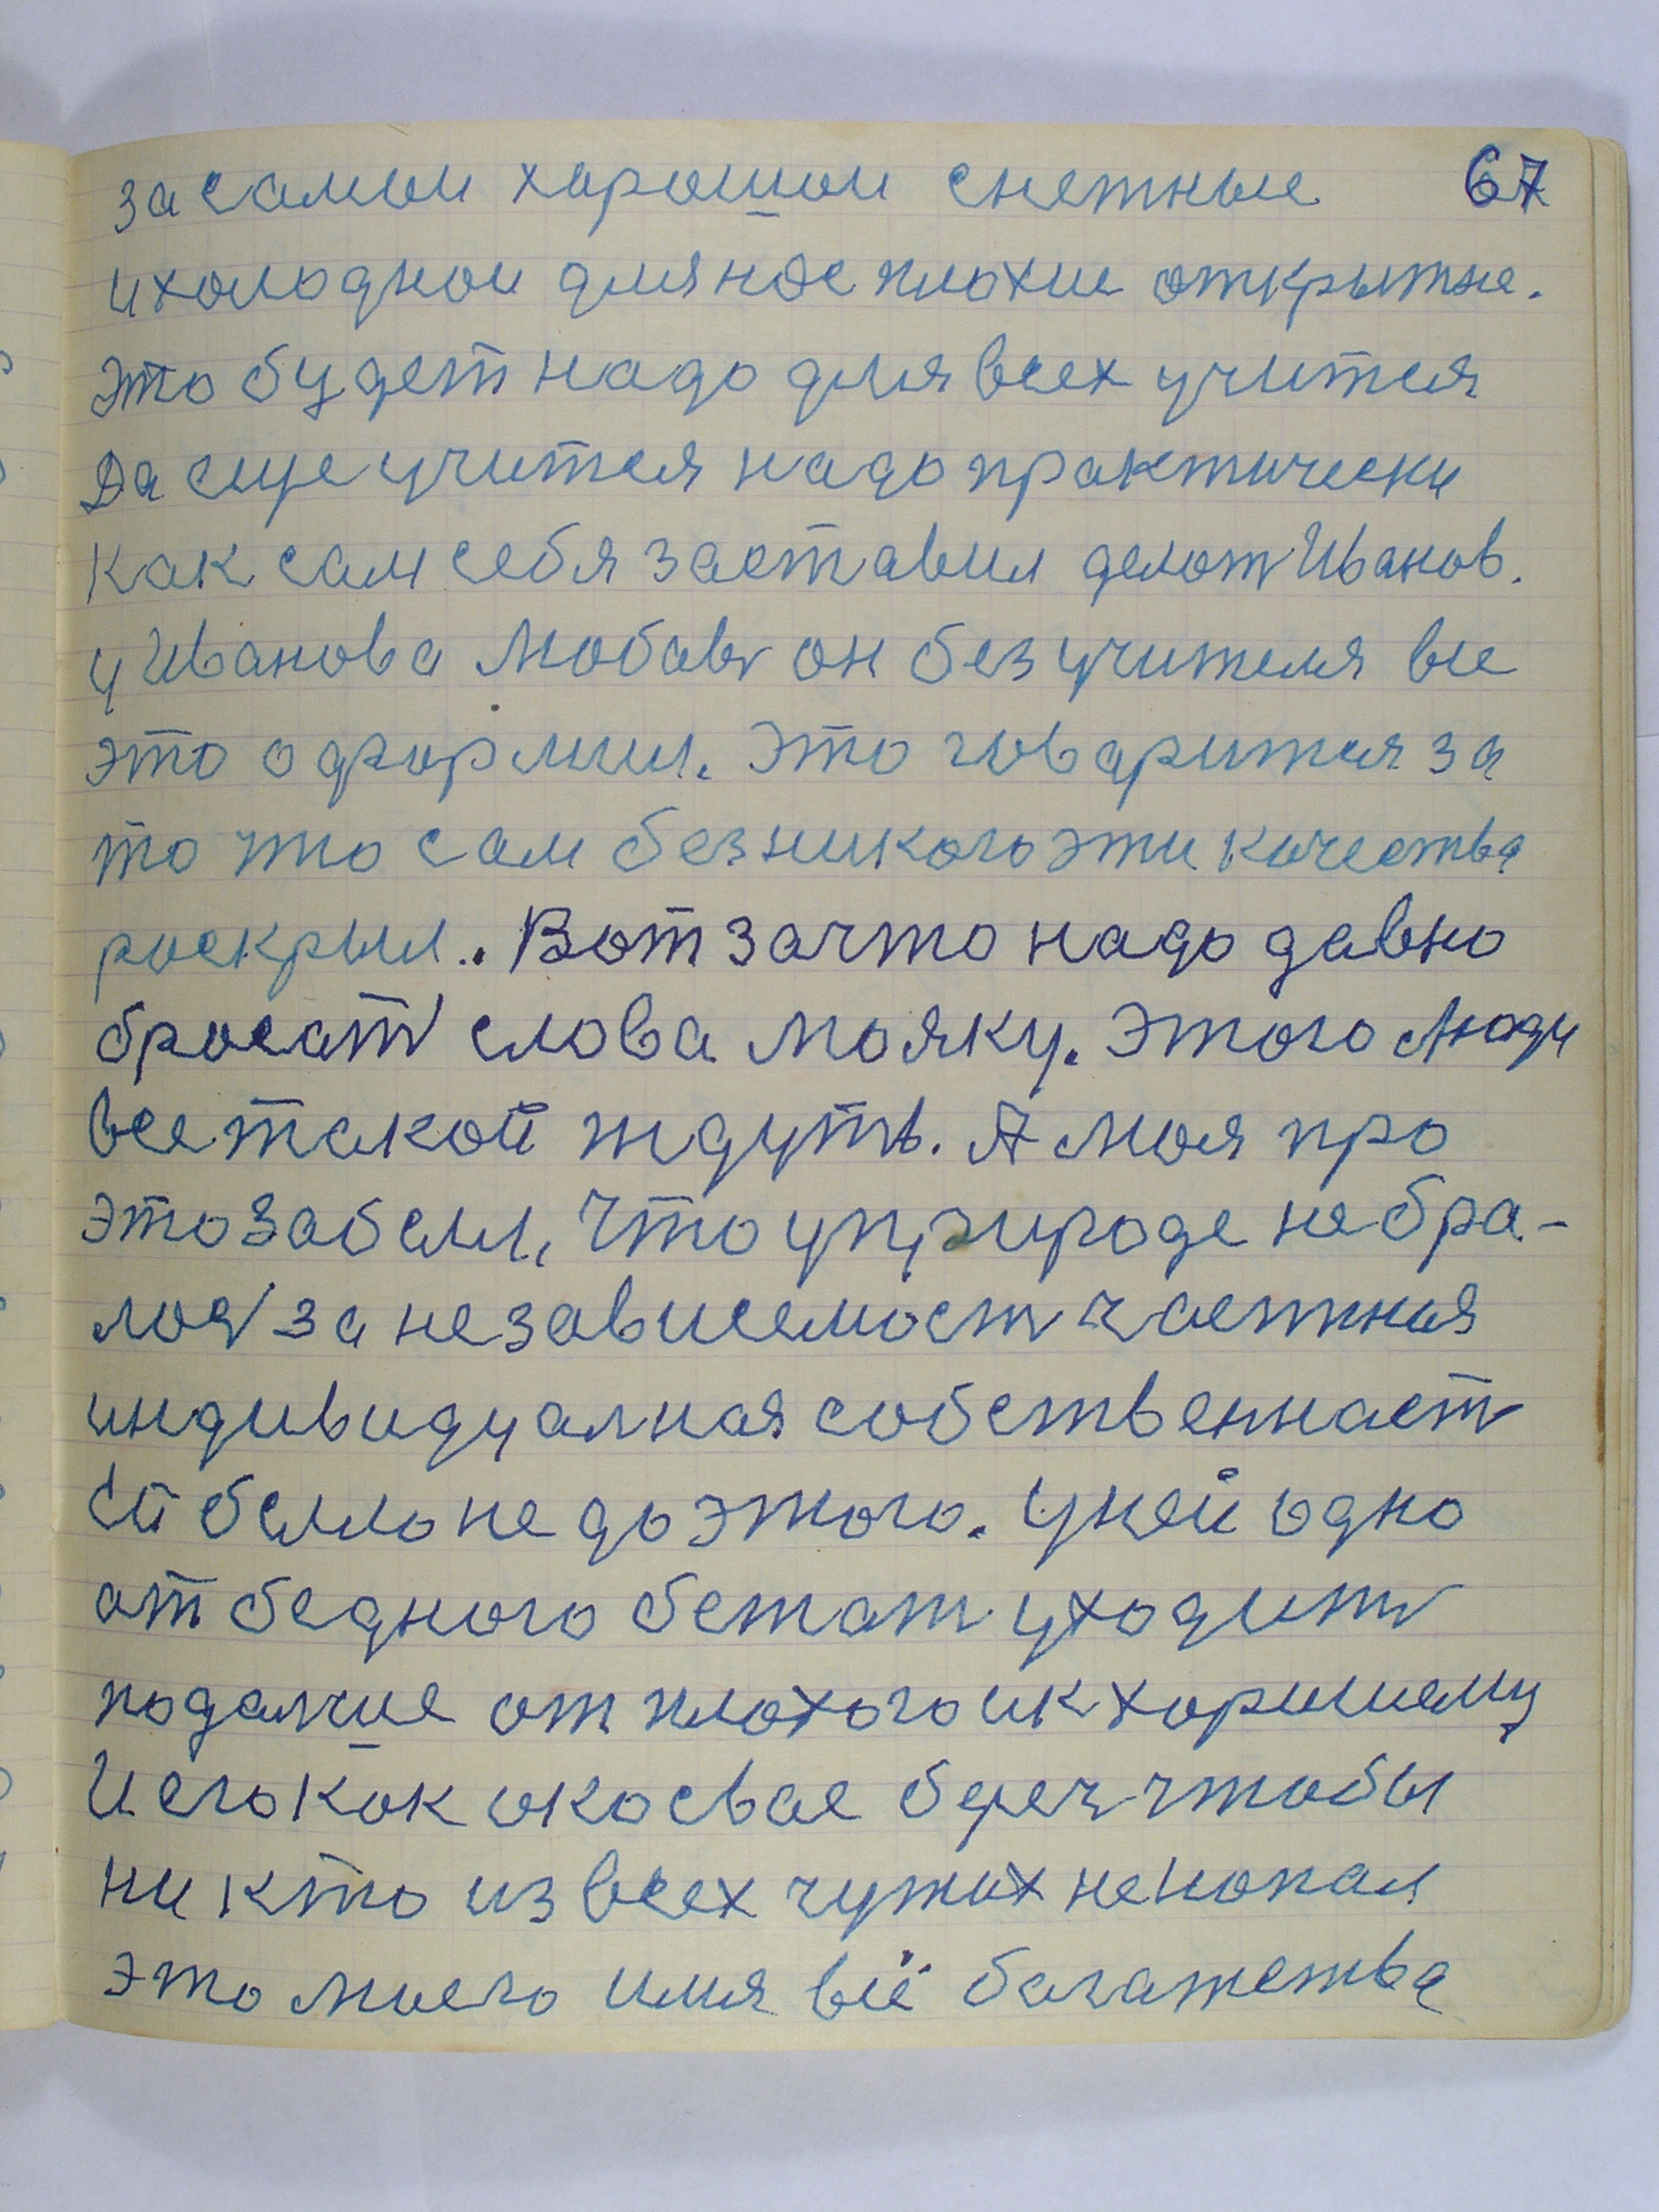 за самыи хорошии снежные 67
и холоднои для нас плохие открытые.
Это будет надо для всех учится
Да еще учится надо практически
как сам себя заставил делат Иванов.
у Иванова Любавь он без учителя все
это оформил. Это говарится за
то что сам без никого эти качества
роскрыл.. Вот за что надо давно
бросать слова мояку. Этого люди
все такой ждуть. А моя про
это забелл, Что у природе не бра-
лось за независемость частная
индивидуалная собственнаст
Ей белло не до этого. Уней одно
от бедного бежат уходить
подалчие от плохого и к хорошему
И его как око свае береч чтобы
ни кто из всех чужих не попал
это моего имя всё багажетва